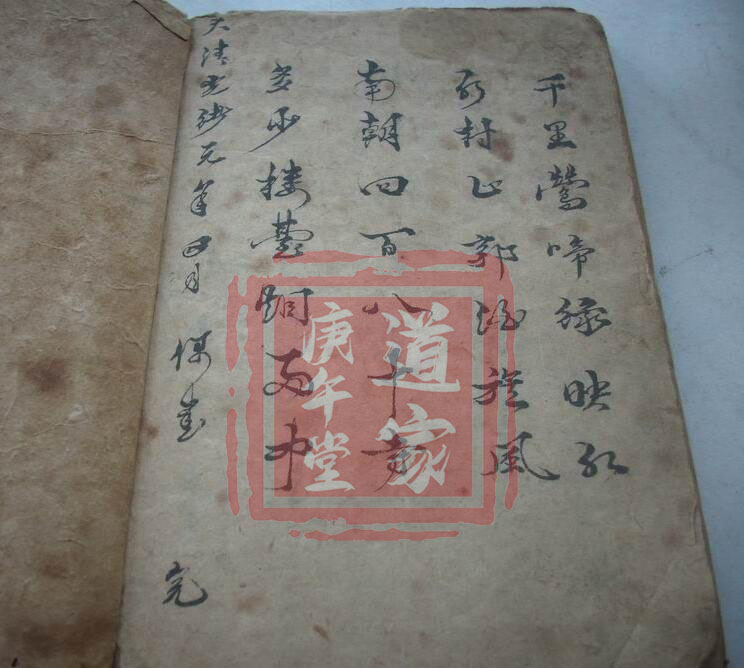 千里鶯啼綠映紅
水村山郭酒旗風
南朝四百八十寺
多少樓臺烟雨中
大清光緒元年四月
完
道家
庚午堂